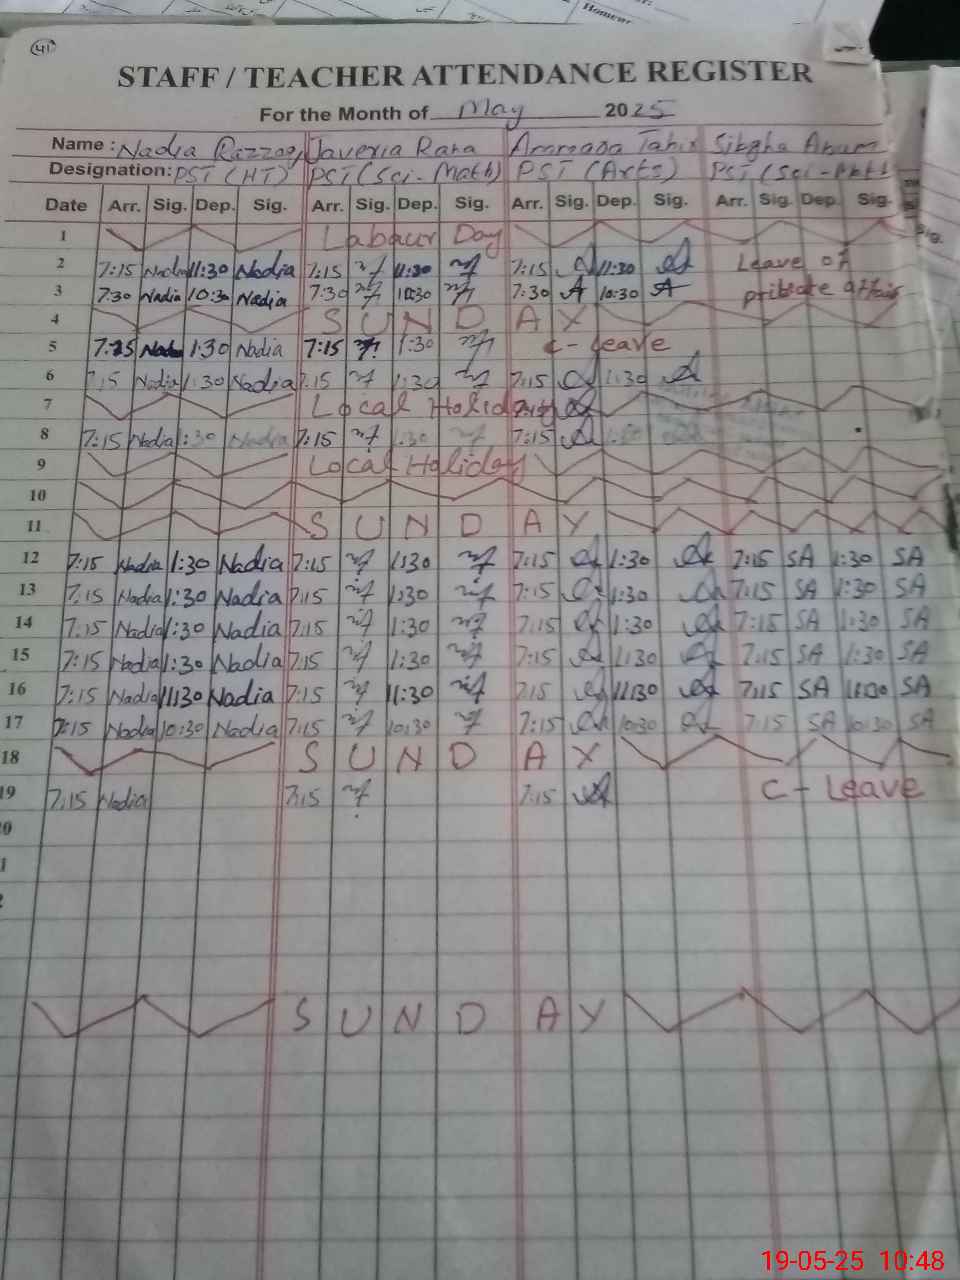 41
STAFF / TEACHER ATTENDANCE REGISTER
For the Month of May 2025
Name : Nadia Razzaq Javeria Rana Tahir Sibgha Anum
Designation: PST (HT) PST (Sci-Math) PST (Arts) PST (Sci-Math)
Date Arr. Sig. Dep. Sig. Arr. Sig. Dep. Sig. Arr. Sig. Dep. Sig. Arr. Sig. Dep. Sig.
1 Labaur Day
2 7:15 Nadia 11:30 Nadia 7:15 11:30 7:15 11:30 Leave of
3 7:30 Nadia 10:30 Nadia 7:30 10:30 7:30 A 10:30 A
4 S U N D A Y
5 7:15 Nadia 1:30 Nadia 7:15 1:30 C-leave
6 7:15 Nadia 1:30 Nadia 7:15 1:30 7:15 1:30
7 Local Holiday
8 7:15 Nadia 1:30 Nadia 7:15 1:30 7:15 1:30
9 Local Holiday
10
11 S U N D A Y
12 7:15 Nadia 1:30 Nadia 7:15 1:30 7:15 1:30 7:15 SA 1:30 SA
13 7:15 Nadia 1:30 Nadia 7:15 1:30 7:15 1:30 7:15 SA 1:30 SA
14 7:15 Nadia 1:30 Nadia 7:15 1:30 7:15 1:30 7:15 SA 1:30 SA
15 7:15 Nadia 1:30 Nadia 7:15 1:30 7:15 1:30 7:15 SA 1:30 SA
16 7:15 Nadia 11:30 Nadia 7:15 11:30 7:15 11:30 7:15 SA 11:30 SA
17 7:15 Nadia 10:30 Nadia 7:15 10:30 7:15 10:30 7:15 SA 10:30 SA
18 S U N D A Y
19 7:15 Nadia 7:15 7:15 C-Leave
S U N D A Y
19-05-25 10:48